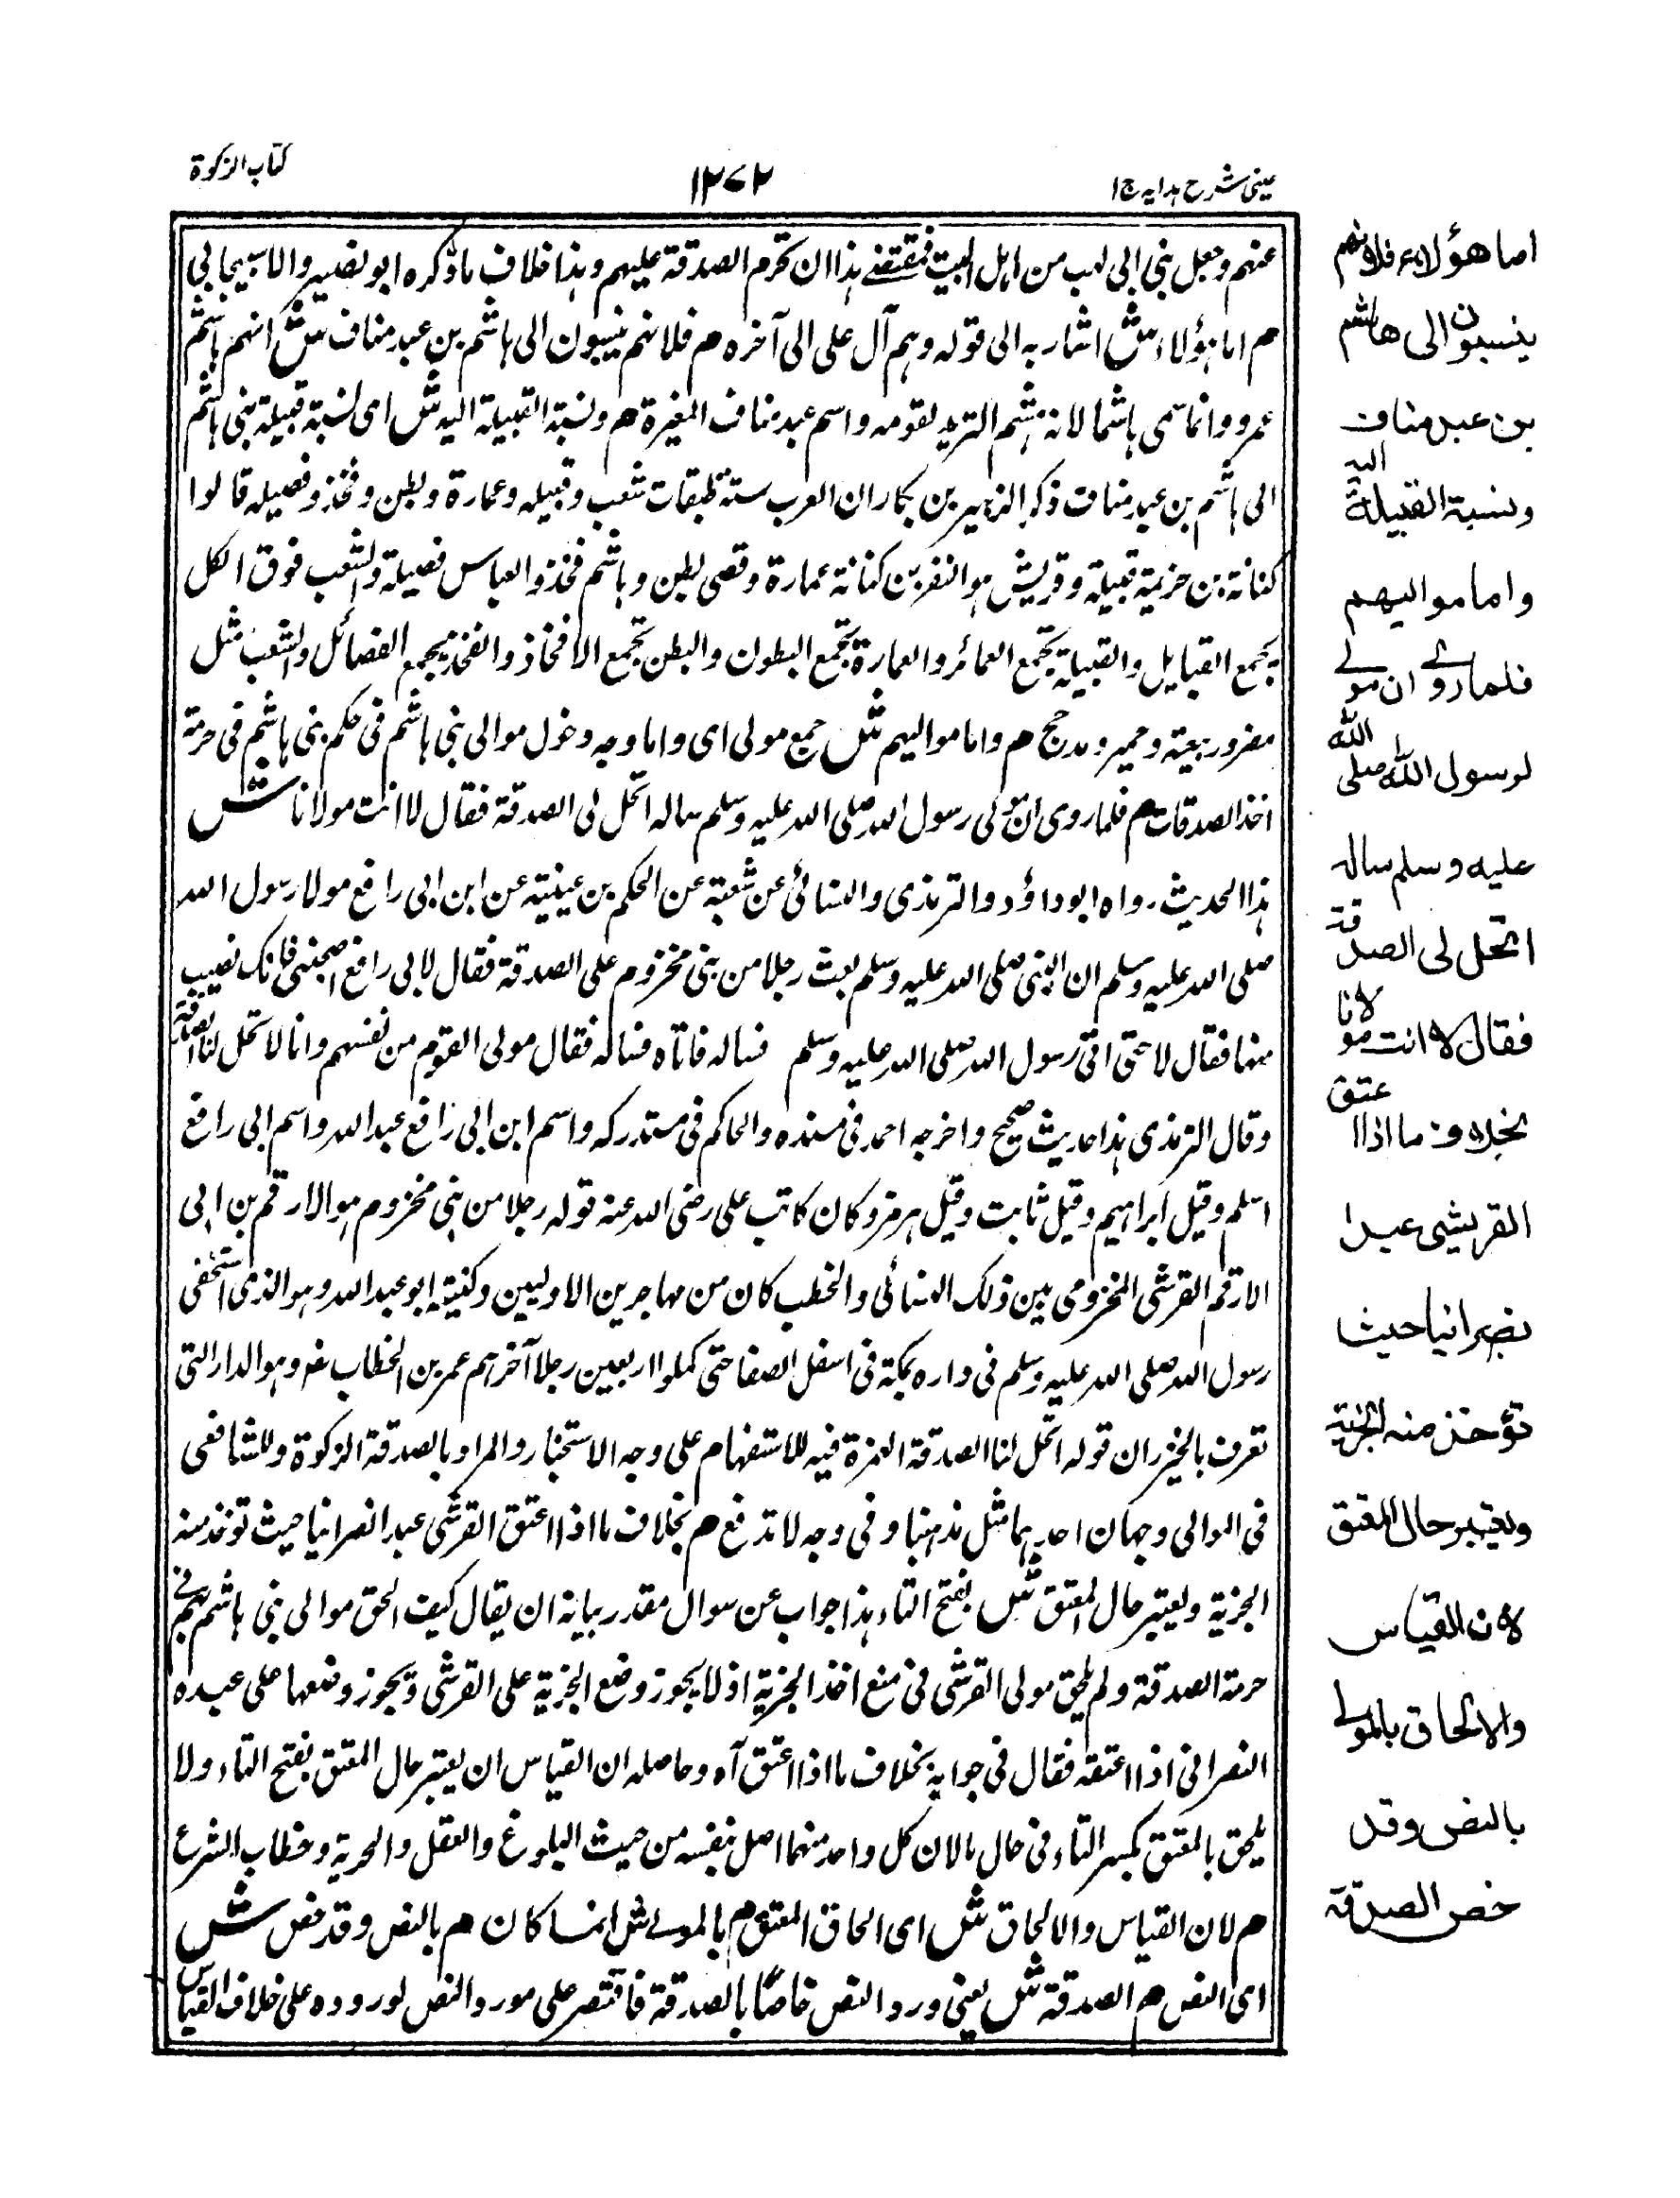 عینی شرح ہدایہ ج۱
۱۲۷۲
کتاب الزکوۃ
عنہم وجعل بنی ابی لہب من اہل البیت فمقتضے ہذا ان تحرم الصدقۃ علیہم وہذا خلاف ماذکرہ ابو نصیر والاسبیجابی
م اما ہؤلاء ش اشار بہ الی قولہ وہم آل علی الی آخرہ م فلانہم ینسبون الی ہاشم بن عبد مناف ش انہم ہاشم
عمرو وانما سمی ہاشما لانہ ہشم الثرید لقومہ واسم عبد مناف المغیرۃ م ونسبۃ القبیلۃ الیہ ش ای نسبۃ قبیلۃ بنی ہاشم
الی ہاشم بن عبد مناف ذکر الزبیر بن بکار ان العرب ستۃ طبقات شعب وقبیلہ وعمارۃ وبطن وفخذ وفصیلہ قالوا
کنانۃ بن خزیمۃ قبیلۃ وقریش ہو النضر بن کنانۃ عمارۃ وقصی بطن وہاشم فخذ والعباس فصیلۃ والشعب فوق الکل
یجمع القبایل والقبیلۃ تجمع العمائر والعمارۃ تجمع البطون والبطن تجمع الافخاذ والفخذ یجمع الفصائل والشعب مثل
مضر وربیعۃ وحمیر ومدحج م واما موالیہم ش جمع مولی ای واما وجہ دخول موالی بنی ہاشم فی حکم بنی ہاشم فی حرمۃ
اخذ الصدقات م فلما روی ان مولی رسول اللہ صلی اللہ علیہ وسلم سالہ اتحل لی الصدقۃ فقال لا انت مولانا ش
ہذا الحدیث رواہ ابو داؤد والترمذی والنسائی عن شعبۃ عن الحکم بن عیینۃ عن ابن ابی رافع مولا رسول اللہ
صلی اللہ علیہ وسلم ان النبی صلی اللہ علیہ وسلم بعث رجلا من بنی مخزوم علی الصدقۃ فقال لابی رافع اصحبنی فانک نصیب
منہا فقال لا حتی اتی رسول اللہ صلی اللہ علیہ وسلم فسالہ فاتاہ فسالہ فقال مولی القوم من نفسہم وانا لا تحل لنا الصدقۃ
وقال الترمذی ہذا حدیث صحیح واخرجہ احمد فی مسندہ والحاکم فی مستدرکہ واسم ابن ابی رافع عبد اللہ واسم ابی رافع
اسلم وقیل ابراہیم وقیل ثابت وقیل ہرمز وکان کاتب علی رضی اللہ عنہ قولہ رجلا من بنی مخزوم ہو الارقم بن ابی
الارقم القرشی المخزومی بین ذلک النسائی والخطب کان من مہاجرین الاولیین وکنیتہ ابو عبد اللہ وہو الذی استخفی
رسول اللہ صلی اللہ علیہ وسلم فی دارہ بمکۃ فی اسفل الصفا حتی کملوا اربعین رجلا آخرہم عمر بن الخطاب وہو الدار التی
تعرف بالخیزران قولہ اتحل لنا الصدقۃ الھمزۃ فیہ للاستفہام علی وجہ الاستخبار والمراد بالصدقۃ الزکوۃ وللشافعی
فی الموالی وجہان احدہما مثل مذہبنا وفی وجہ لا تدفع م بخلاف ما اذا اعتق القرشی عبدا نصرانیا حیث توخذ منہ
الجزیۃ ویعتبر حال المعتق ش بفتح التاء ہذا جواب عن سوال مقدر بیانہ ان یقال کیف الحق موالی بنی ہاشم بہم فی
حرمۃ الصدقۃ ولم یلحق مولی القرشی فی منع اخذ الجزیۃ اذ لا یجوز وضع الجزیۃ علی القرشی ویجوز وضعہا علی عبدہ
النصرانی اذا اعتقہ فقال فی جوابہ بخلاف ما اذا اعتق آہ وحاصلہ ان القیاس ان یعتبر حال المعتق بفتح التاء ولا
یلحق بالمعتق بکسر التاء فی حال ما لان کل واحد منہما اصل بنفسہ من حیث البلوغ والعقل والحریۃ وخطاب الشرع
م لان القیاس والالحاق ش ای الحاق المعتق م بالمولے ش انما کان م بالنص وقد خص ش
ای النص م الصدقۃ ش یعنی ورد النص خاصًا بالصدقۃ فاقتصر علی مورد النص لورودہ علی خلاف القیاس
اما هؤلاء فلانهم
ينسبون الى هاشم
بن عبد مناف
ونسبة القبيلة اليه
واما مواليهم
فلما روے ان مولے
لرسول الله صلى الله
عليه وسلم ساله
اتحل لى الصدقة
فقال لا انت مولانا
بخلاف ما اذا اعتق
القريشى عبدا
نصرانيا حيث
تؤخذ منه الجزية
ويعتبر حال المعتق
لان القياس
والالحاق بالمولے
بالنص وقد
خص الصدقة